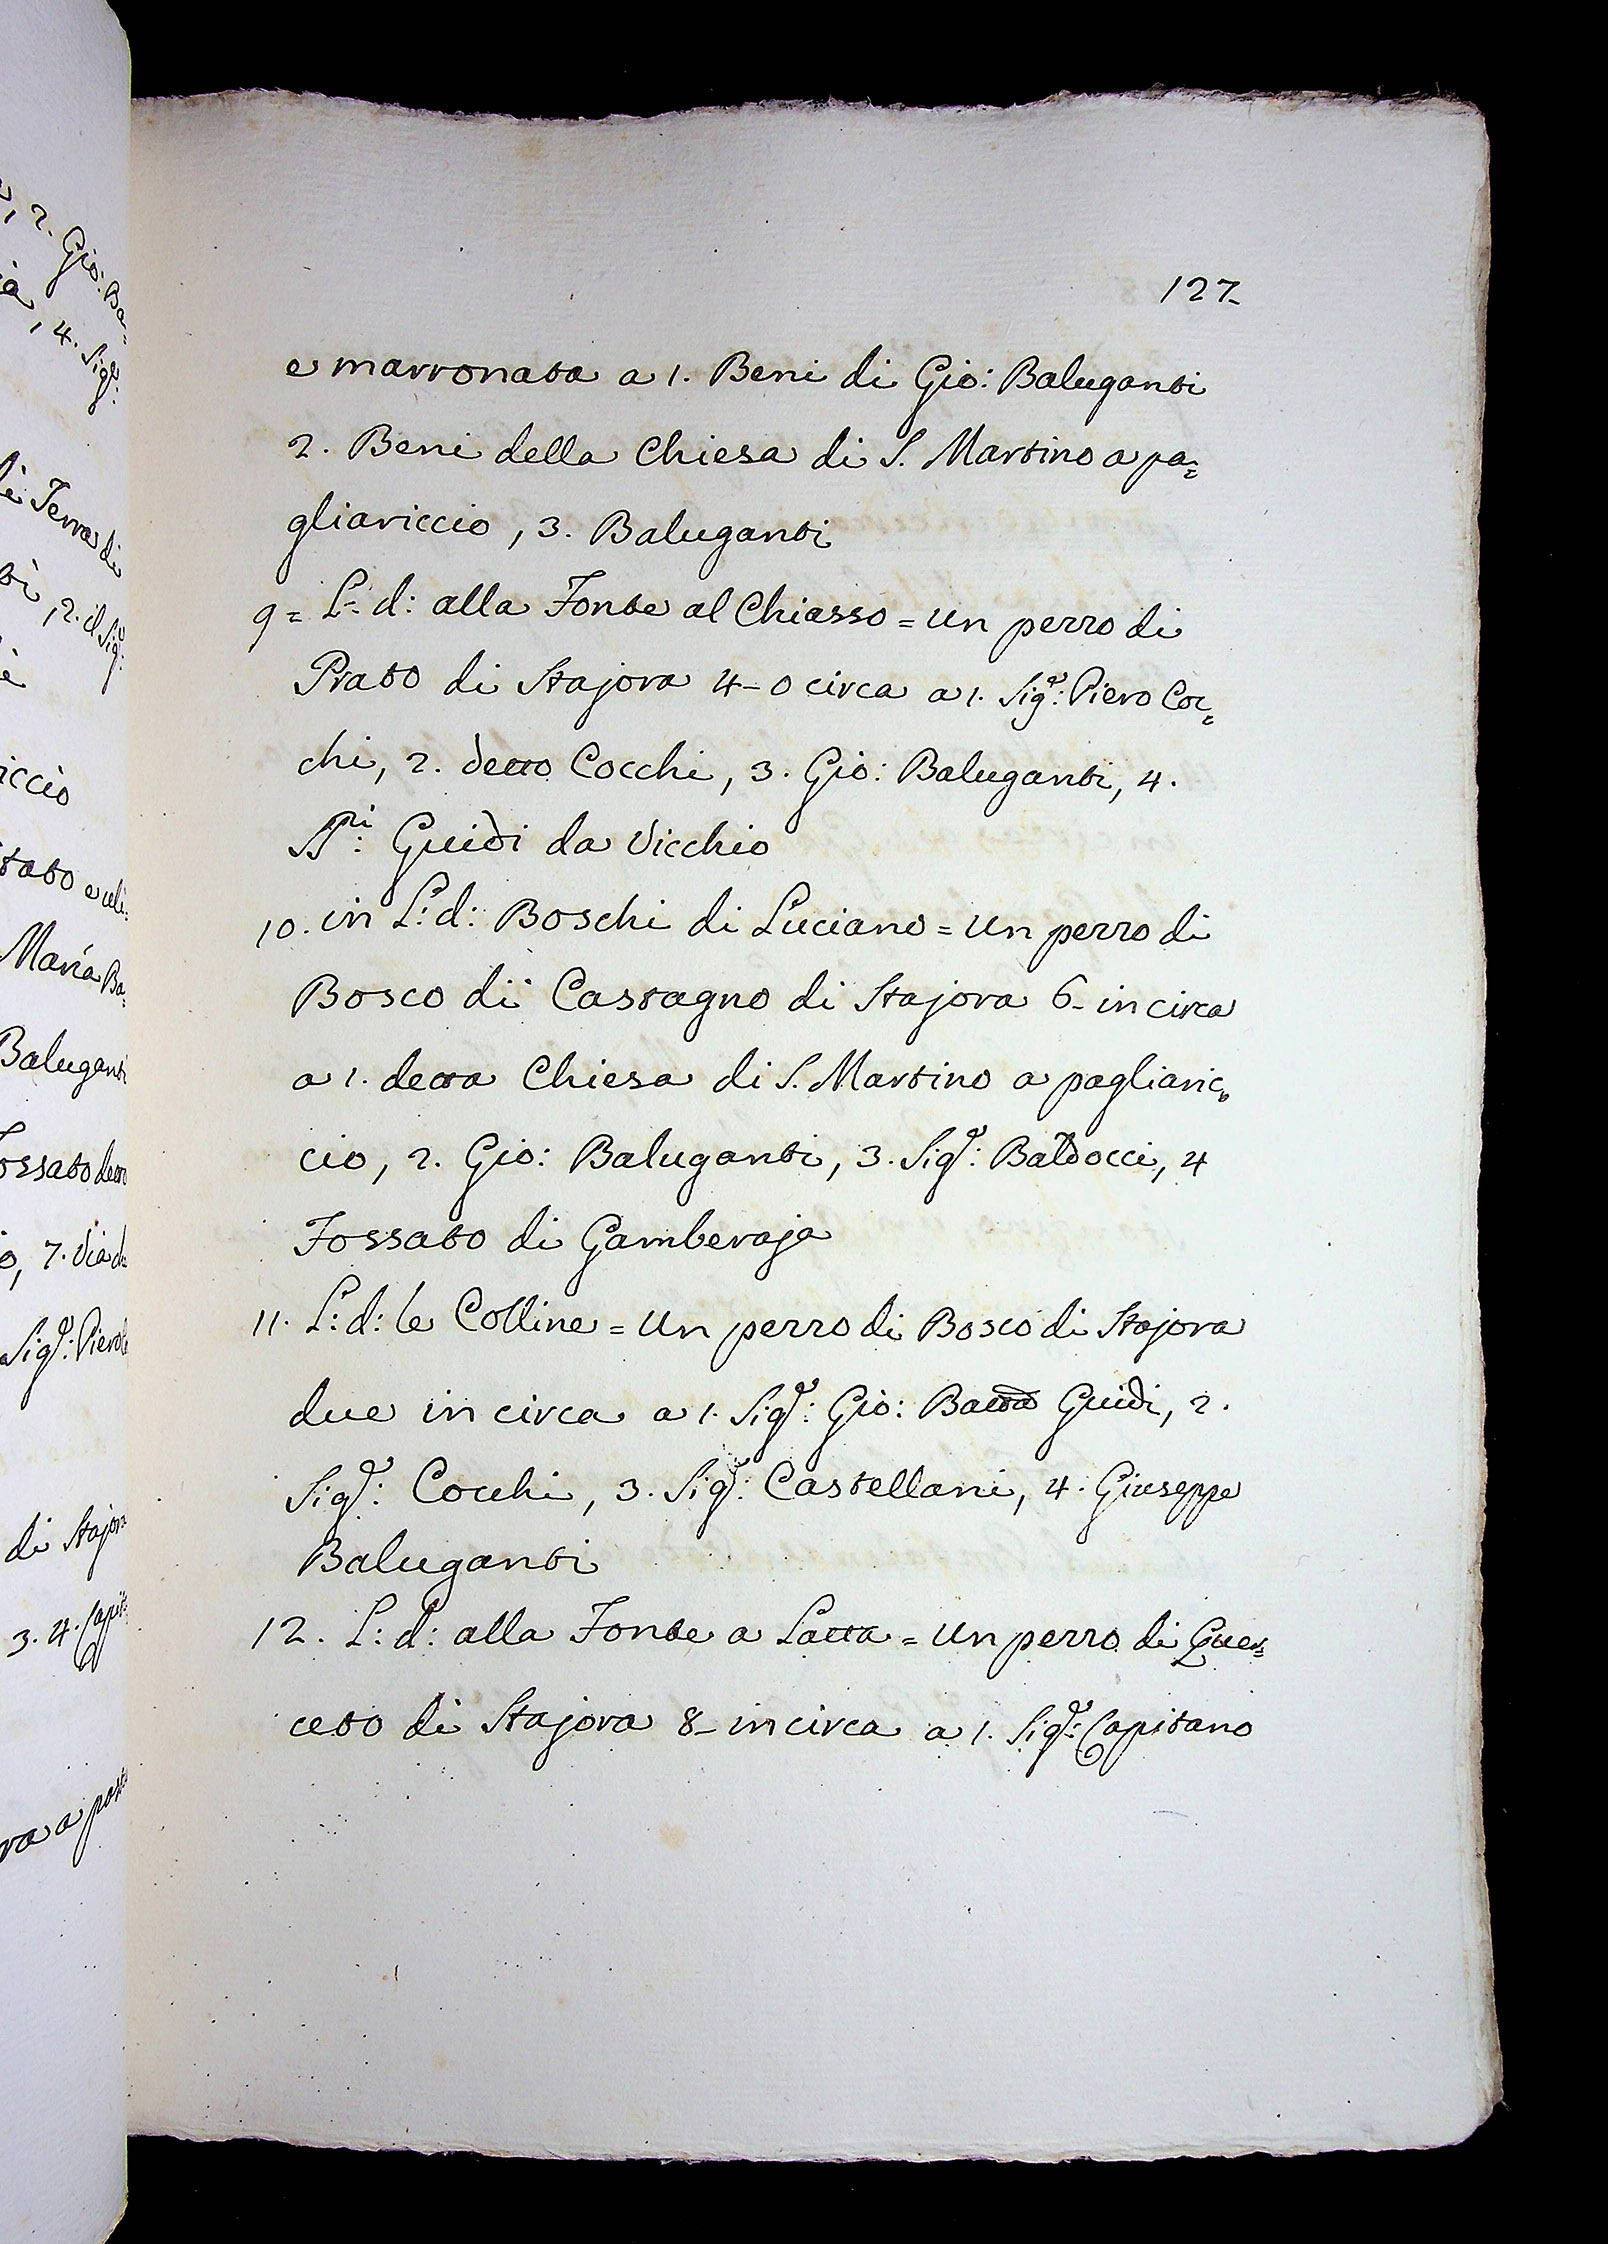 127
e marronata a 1. Beni di Gio: Baluganti
2. Beni della Chiesa di S. Martino a pa=
gliariccio, 3. Baluganti
9 = L: d: alla Fonte al Chiasso = Un pezzo di
Prato di Stajora 4-0 circa a 1. Sig.e: Piero Coc=
chi, 2. detto Cocchi, 3. Gio: Baluganti, 4.
SS.ri: Guidi da Vicchio
10. in L: d: Boschi di Luciano = Un pezzo di
Bosco di Castagno di Stajora 6- in circa
a 1. detta Chiesa di S. Martino a pagliaric=
cio, 2. Gio: Baluganti, 3. Sig.e: Baldocci, 4
Fossato di Gamberaja
11. L: d: le Colline = Un pezzo di Bosco di Stajora
due in circa a 1. Sig.e: Gio: Batta Guidi, 2.
Sig.e: Cocchi, 3. Sig.e: Castellani, 4. Giuseppe
Baluganti
12. L: d: alla Fonte a Latta = Un pezzo di Quer=
ceto di Stajora 8- in circa a 1. Sig.e: Capitano
2. Gio: Ba=
, 4. Sig.e:
Terra di
, 2. il Sig.e:
iccio
Maria Ba=
Baluganti
ossato detto
o, 7. Via d
Sig.e: Piero
di Stajora
3. 4. Capit